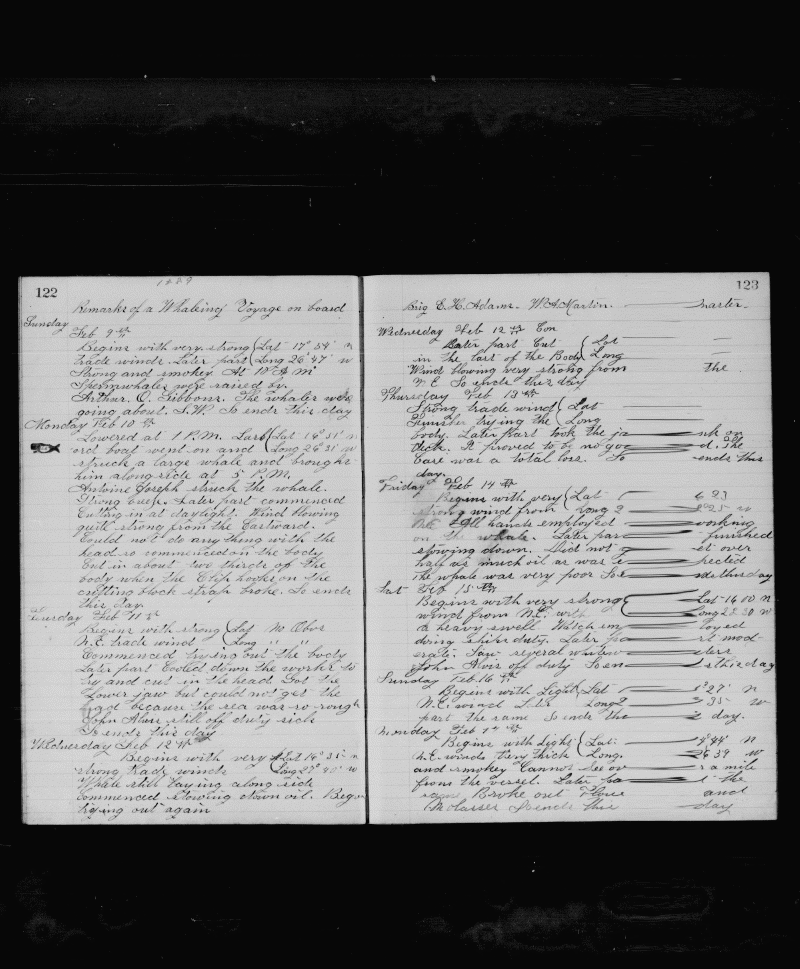 122
Remarks of a Whaleing Voyage on board
Sunday
Feb 9th
Begins with very strong Lat 17° 54' n
trade winds Later part Long 26° 47' w
Strong and smokey At 10 A M
Spermwhales were raised by
Arthur. O. Gibbons. The whales were
going about S.W. So ends this day
Monday Feb 10th
Lowered at 1 P.M. Larb Lat 16° 51' n
ord boat went on and Long 26° 31' w
struck a large whale and brought
him along side at 5 P.M.
Antoine Joseph struck the whale.
Strong breeze. Later part commenced
Cutting in at daylight. Wind blowing
quite strong from the Eastward.
Could not do anything with the
head so commenced on the body
Cut in about two thirds of the
body when the hooks on the
cutting block strap broke. So ends
this day
Tuesday Feb 11th
Begins with strong Lat No Obs
N.E. trade wind Long " "
Commenced trying out the body
Later part Cooled down the works to
try and cut in the head Got the
Lower jaw but could not get the
head because the sea was so rough
John Alves still off duty sick
So ends this day
Wednesday Feb 12th
Begins with very Lat 16° 35' n
strong trade winds Long 27° 40' w
Whale still laying along side
Commenced stowing down oil. Began
trying out again
123
Brig E. H. Adams. W. A. Martin. Master.
Wednesday Feb 12th Con
Later part Cut Lat
in the last of the Body Long
Wind blowing very strong from the
N. E. So ends this day
Thursday Feb 13th
Strong trade wind Lat
Finisher trying the Long
body. Later part took the junk on
deck. It proved to be no good. The
Case was a total loss. So ends this
day.
Friday Feb 14th
Begins with very Lat 6 23
strong wind from Long 2 8° 25' w
All hands employed working
on the whale. Later part finished
stowing down. Did not get over
half as much oil as was expected
The whale was very poor So ends this day
Sat Feb 15th
Begins with very strong Lat 16 10 n
wind from N.E. with Long 28 30 w
a heavy swell Watch employed
doing ships duty. Later part mod-
erate. Saw several
John Alves off duty So ends this day
Sunday Feb 16th
Begins with Light Lat 1° 27' n
N.E. wind Later Long 2 35' w
part the same So ends this day.
Monday Feb 17th
Begins with Light Lat 44' n
N.E. winds very thick Long. 26 39 w
and smokey Cannot see over a mile
from the vessel. Later part the
same Broke out Flour and
Molasses So ends this day